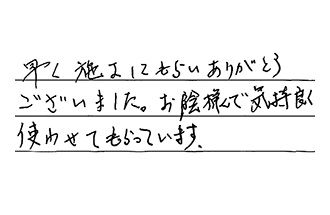 早く施工してもらいありがとう
ございました。お陰様で気持良く
使わせてもらっています。